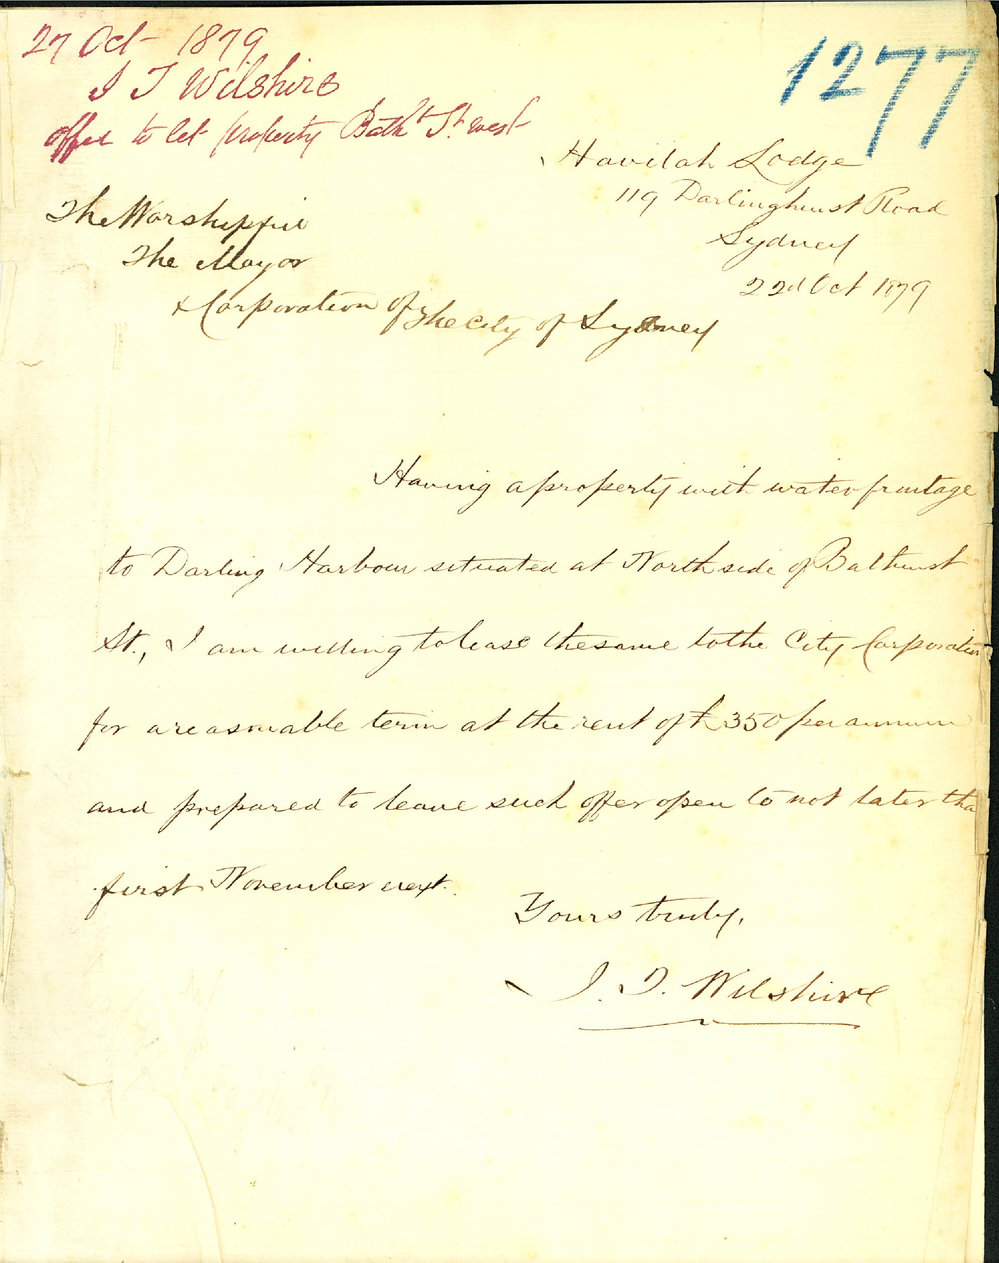 27 Oct - 1879
J T Wilshire
offer to let property Bath^t St. west
1277
Havilah Lodge
119 Darlinghurst Road
Sydney
22d Oct 1879
The Worshipful
The Mayor
& Corporation of The City of Sydney
Having a property with water frontage
to Darling Harbour situated at North side of Bathurst
St., I am willing to lease the same to the City Corporation
for a reasonable term at the rent of £350 per annum
and prepared to leave such offer open to not later tha
first November next.
Yours truly,
J. T. Wilshire